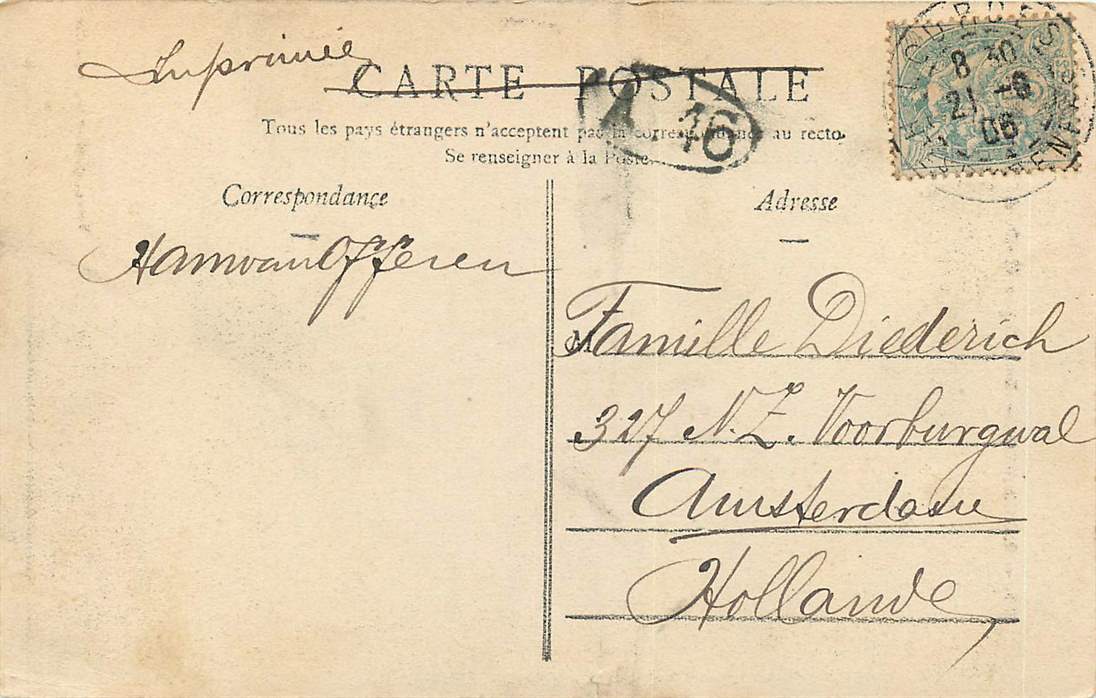 Imprimée
CARTE POSTALE
Tous les pays étrangers n'acceptent pas la correspondance au recto.
Se renseigner à la Poste.
A 46
LOURDES
8 30
21 -6
06
Correspondance
Adresse
Ham van Offeren
M
Famille Diederich
327 N.Z. Voorburgwal
Amsterdam
Hollande,